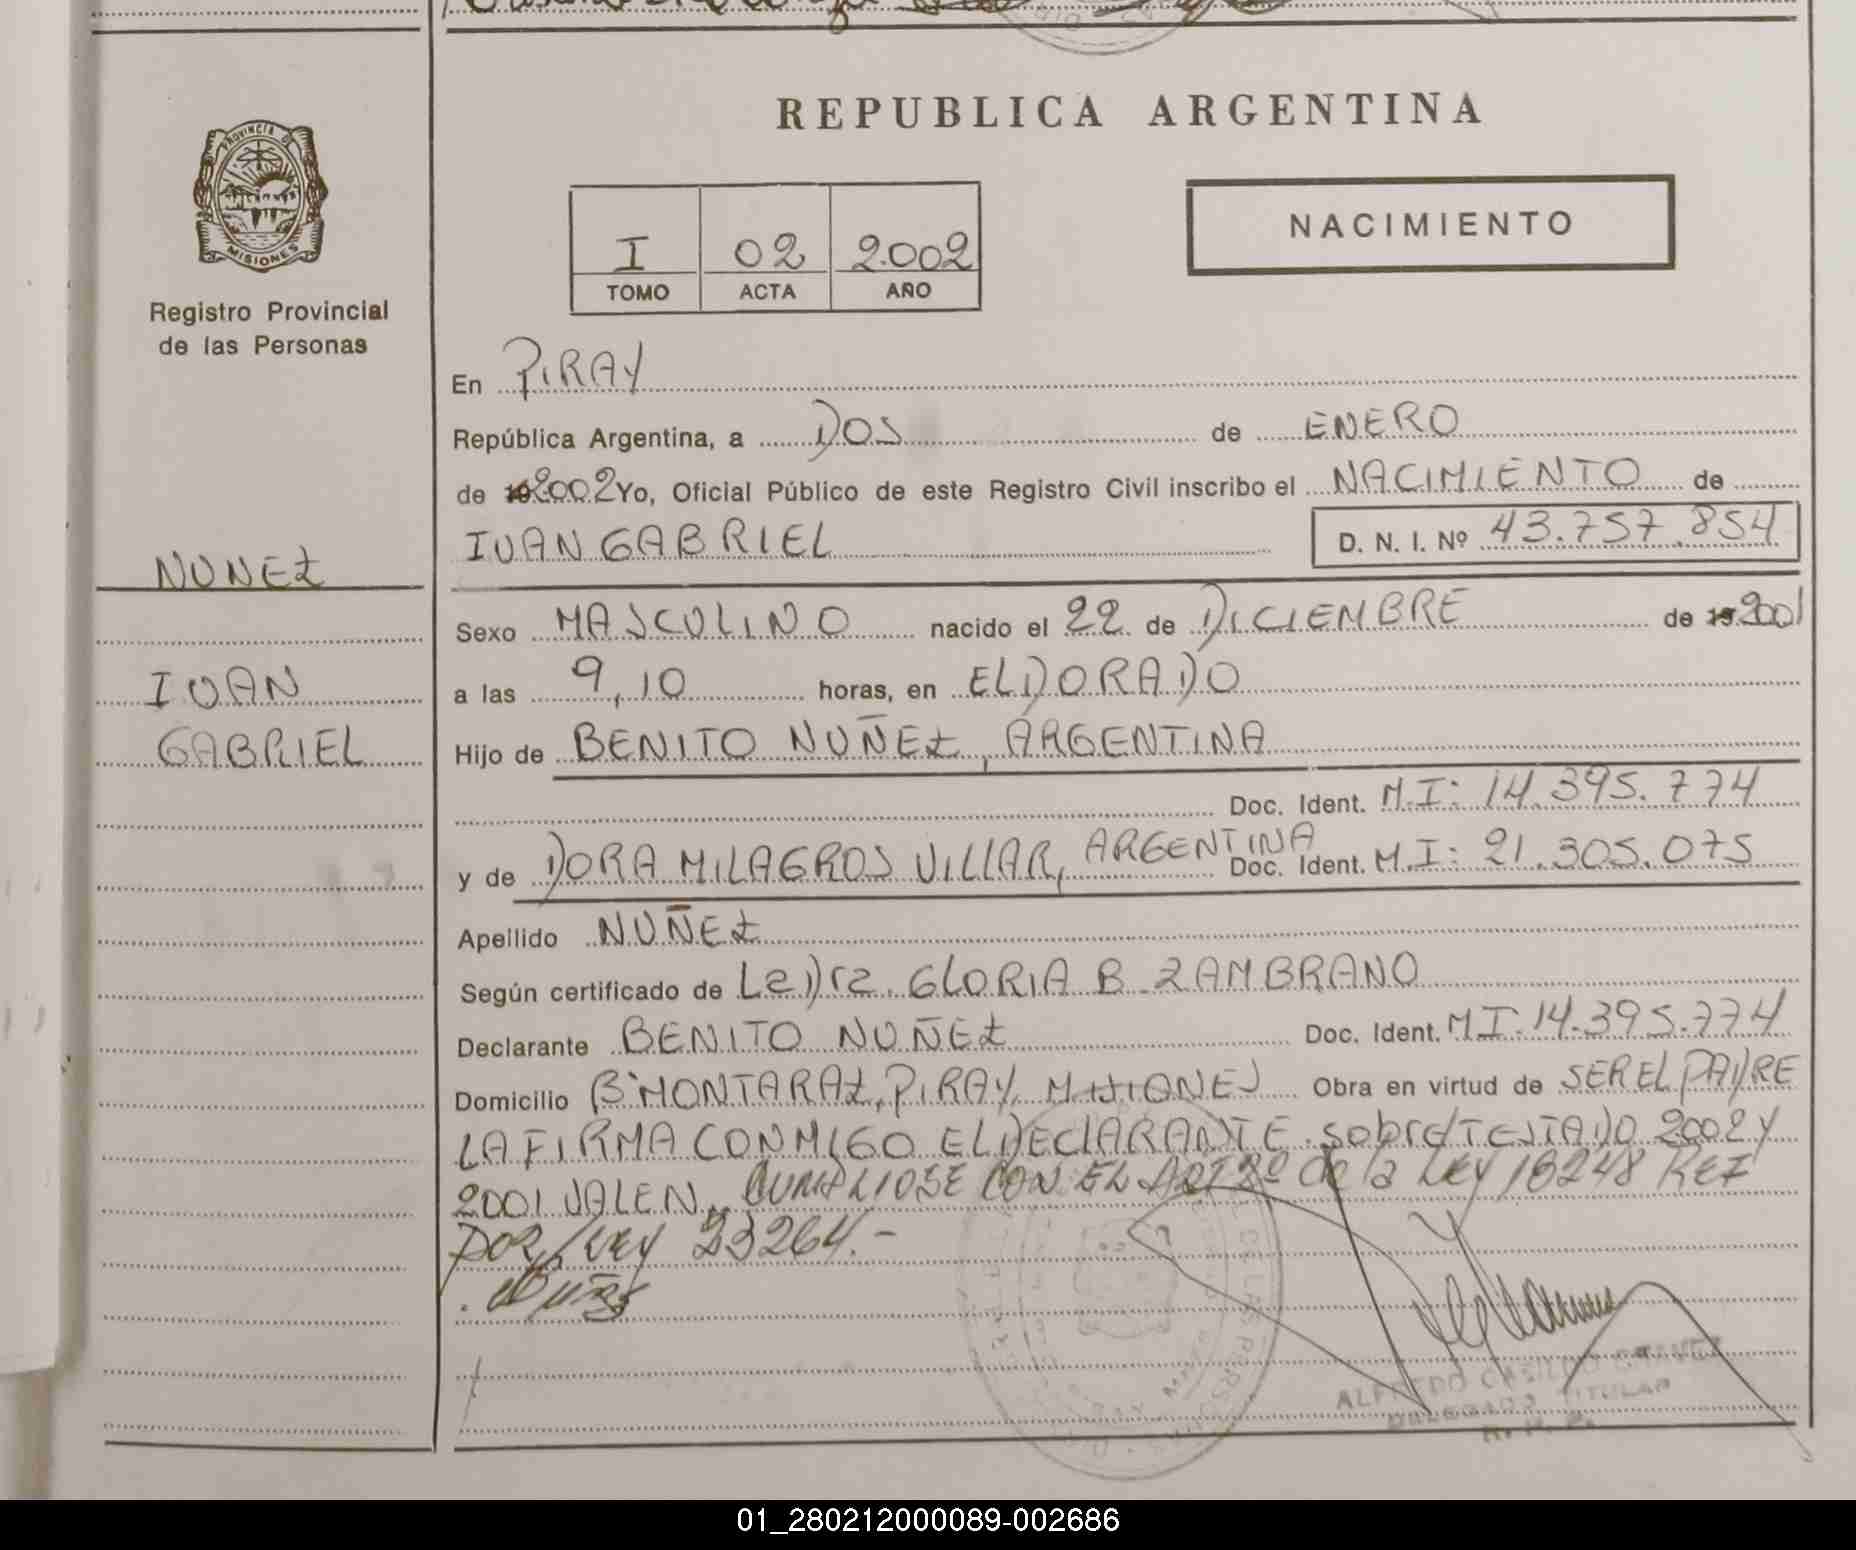 REPUBLICA ARGENTINA
PROVINCIA DE
MISIONES
Registro Provincial
de las Personas
NACIMIENTO
I 02 2.002
TOMO ACTA AÑO
En PIRAY
República Argentina, a DOS de ENERO
de 192002 Yo, Oficial Público de este Registro Civil inscribo el NACIMIENTO de
IVAN GABRIEL D. N. I. Nº 43.757.854
NUNEZ
IVAN
GABRIEL
Sexo MASCULINO nacido el 22 de DICIEMBRE de 192001
a las 9,10 horas, en ELDORADO
Hijo de BENITO NUÑEZ, ARGENTINA
Doc. Ident. M.I: 14.395.774
y de DORA MILAGROS VILLAR, ARGENTINA Doc. Ident. M.I: 21.305.075
Apellido NUÑEZ
Según certificado de La Dra. GLORIA B. ZAMBRANO
Declarante BENITO NUÑEZ Doc. Ident. MI.14.395.774
Domicilio Bº MONTARAZ, PIRAY, MISIONES Obra en virtud de SER EL PADRE
LA FIRMA CONMIGO EL DECLARANTE. sobre/TESTADO 2002 Y
2001 VALEN. CUMPLIOSE CON EL ART 2º de la LEY 18248 REF
POR LEY 23264.-
ALFREDO CASILDO
DELEGADO TITULAR
R. P. P.
01_280212000089-002686